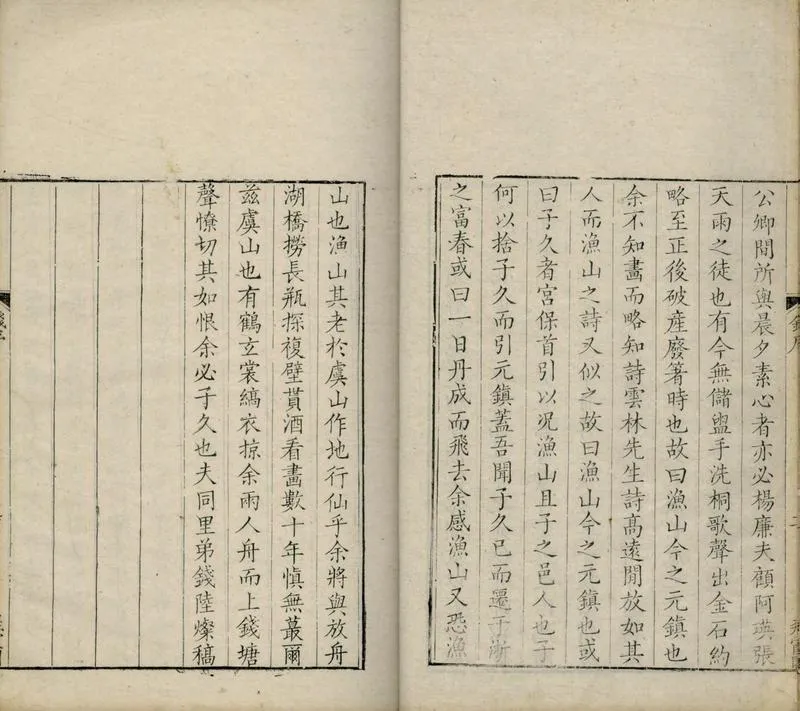 公卿間所與晨夕素心者亦必楊廉夫顧阿瑛張
天雨之徒也有今無儲盥手洗桐歌聲出金石約
略至正後破產廢箸時也故曰漁山今之元鎮也
余不知畫而略知詩雲林先生詩高遠閒放如其
人而漁山之詩又似之故曰漁山今之元鎮也或
曰子久者宮保首引以况漁山且子之邑人也子
何以捨子久而引元鎮蓋吾聞子久已而遷于浙
之富春或曰一日丹成而飛去余感漁山又恐漁
山也漁山其老於虞山作地行仙乎余將與放舟
湖橋撈長瓶探複壁貰酒看畫數十年愼無蕞爾
茲虞山也有鶴玄裳縞衣掠余兩人舟而上錢塘
聲憭切其如恨余必子久也夫同里弟錢陸燦稿